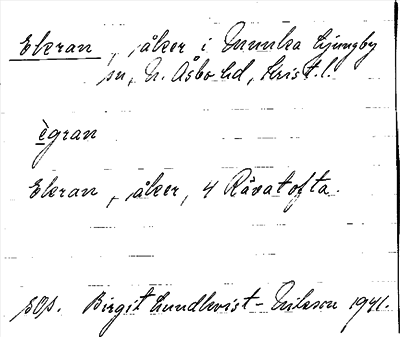 Ekran, åker i Munka Ljungby
sn, N. Åsbo hd, Krist. l.
ègran
Ekran, åker, 4 Råvatofta.
Birgit Lundkvist-Erikson 1941.